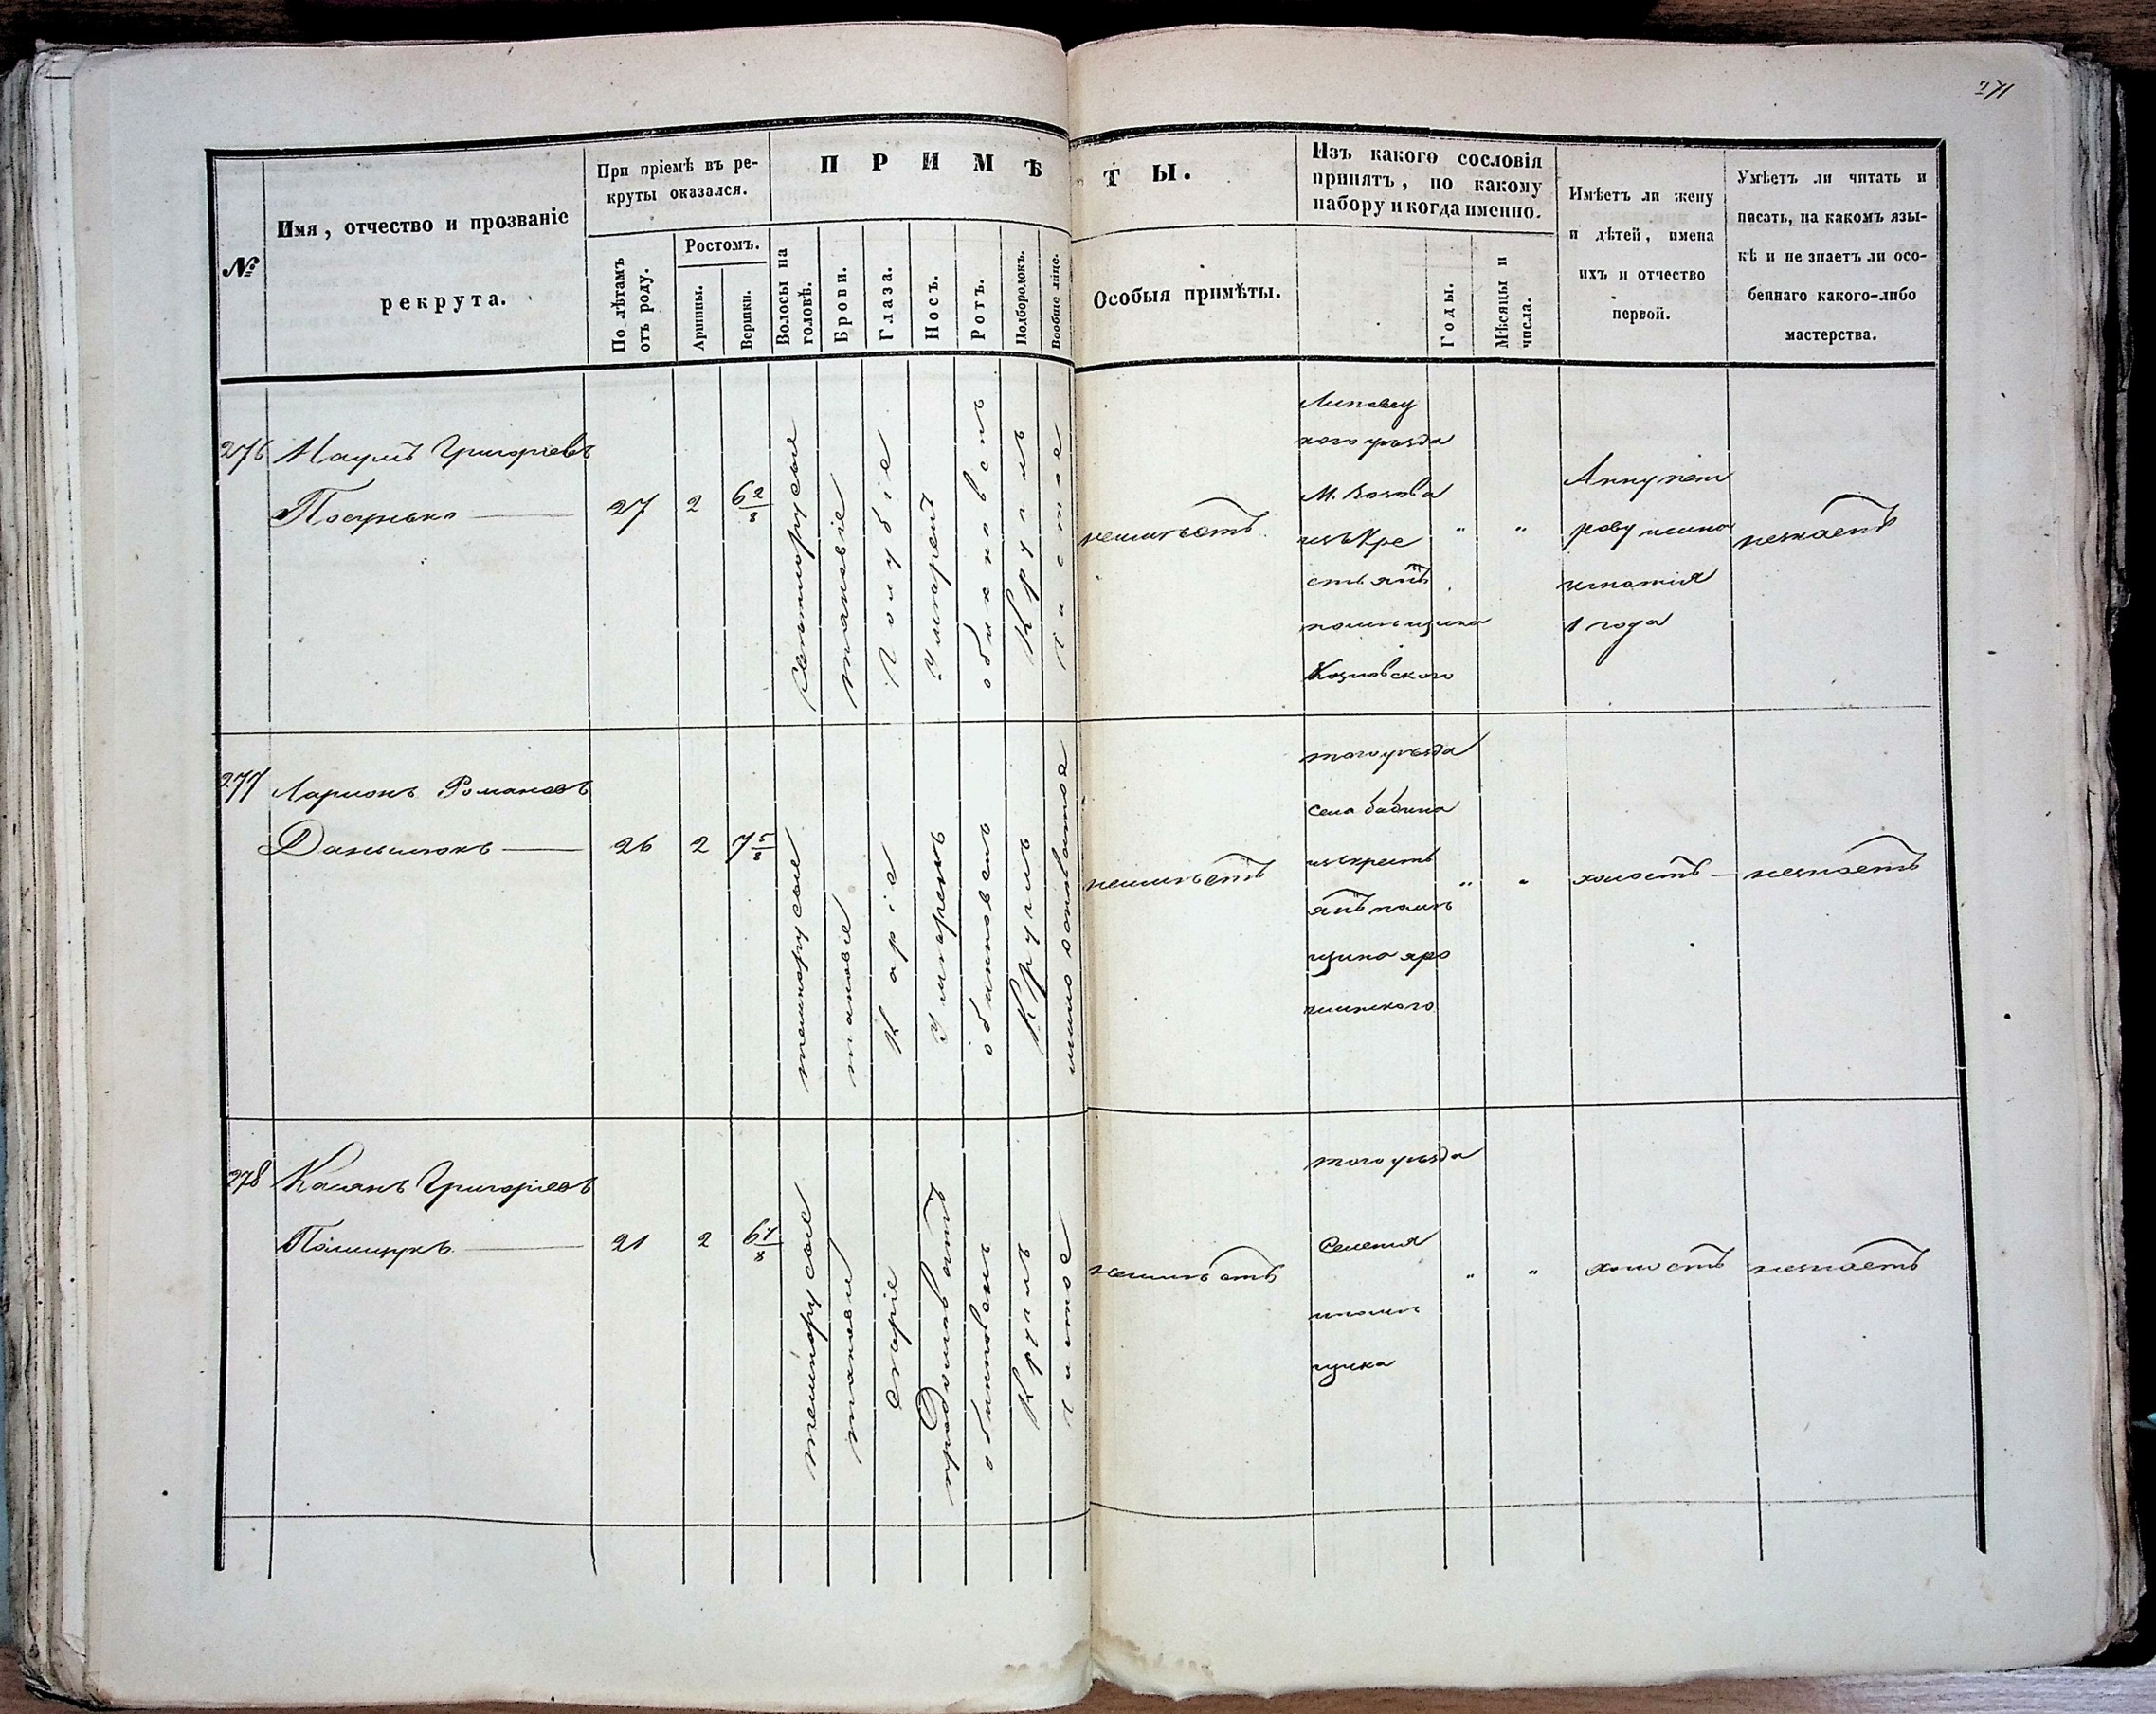 271
№
Имя, отчество и прозваніе
рекрута.
При пріемѣ въ ре-
круты оказался.
По лѣтамъ
отъ роду.
Ростомъ.
Аршины.
Вершки.
ПРИМѢТЫ.
Волосы на
головѣ.
Брови.
Глаза.
Носъ.
Ротъ.
Подбородокъ.
Вообще лице.
Особыя примѣты.
Изъ какого сословія
принятъ, по какому
набору и когда именно.
Годы.
Мѣсяцы и
числа.
Имѣетъ ли жену
и дѣтей, имена
ихъ и отчество
первой.
Умѣетъ ли читать и
писать, на какомъ язы-
кѣ и не знаетъ ли осо-
беннаго какого-либо
мастерства.
276
Наумъ Григоріевъ
27
2
6 2/8
светлорусые
таковіе
Голубіе
Умѣренъ
Круглъ
Чистое
неимѣетъ
Липовец
кого уѣзда
изъ Кре
стьянъ
помѣщика
Козловского
"
"
Анну пет
рову сына
игнатія
1 года
незнаетъ
277
Ларионъ Романовъ
Данилюкъ
26
2
7 5/8
темнорусые
таковіе
Каріе
Умѣренъ
обикновенъ
Круглъ
неимѣетъ
того уѣзда
села бабина
изъ крестъ
янъ помѣ
щика яро
шинского
"
"
холостъ
незнаетъ
278
Касянъ Григоріевъ
21
2
6 1/8
темнорусые
таковы
Продолговатъ
обикновенъ
Круглъ
Чистое
неимѣетъ
того уѣзда
Селения
ипомѣ
щика
"
"
холостъ
незнаетъ